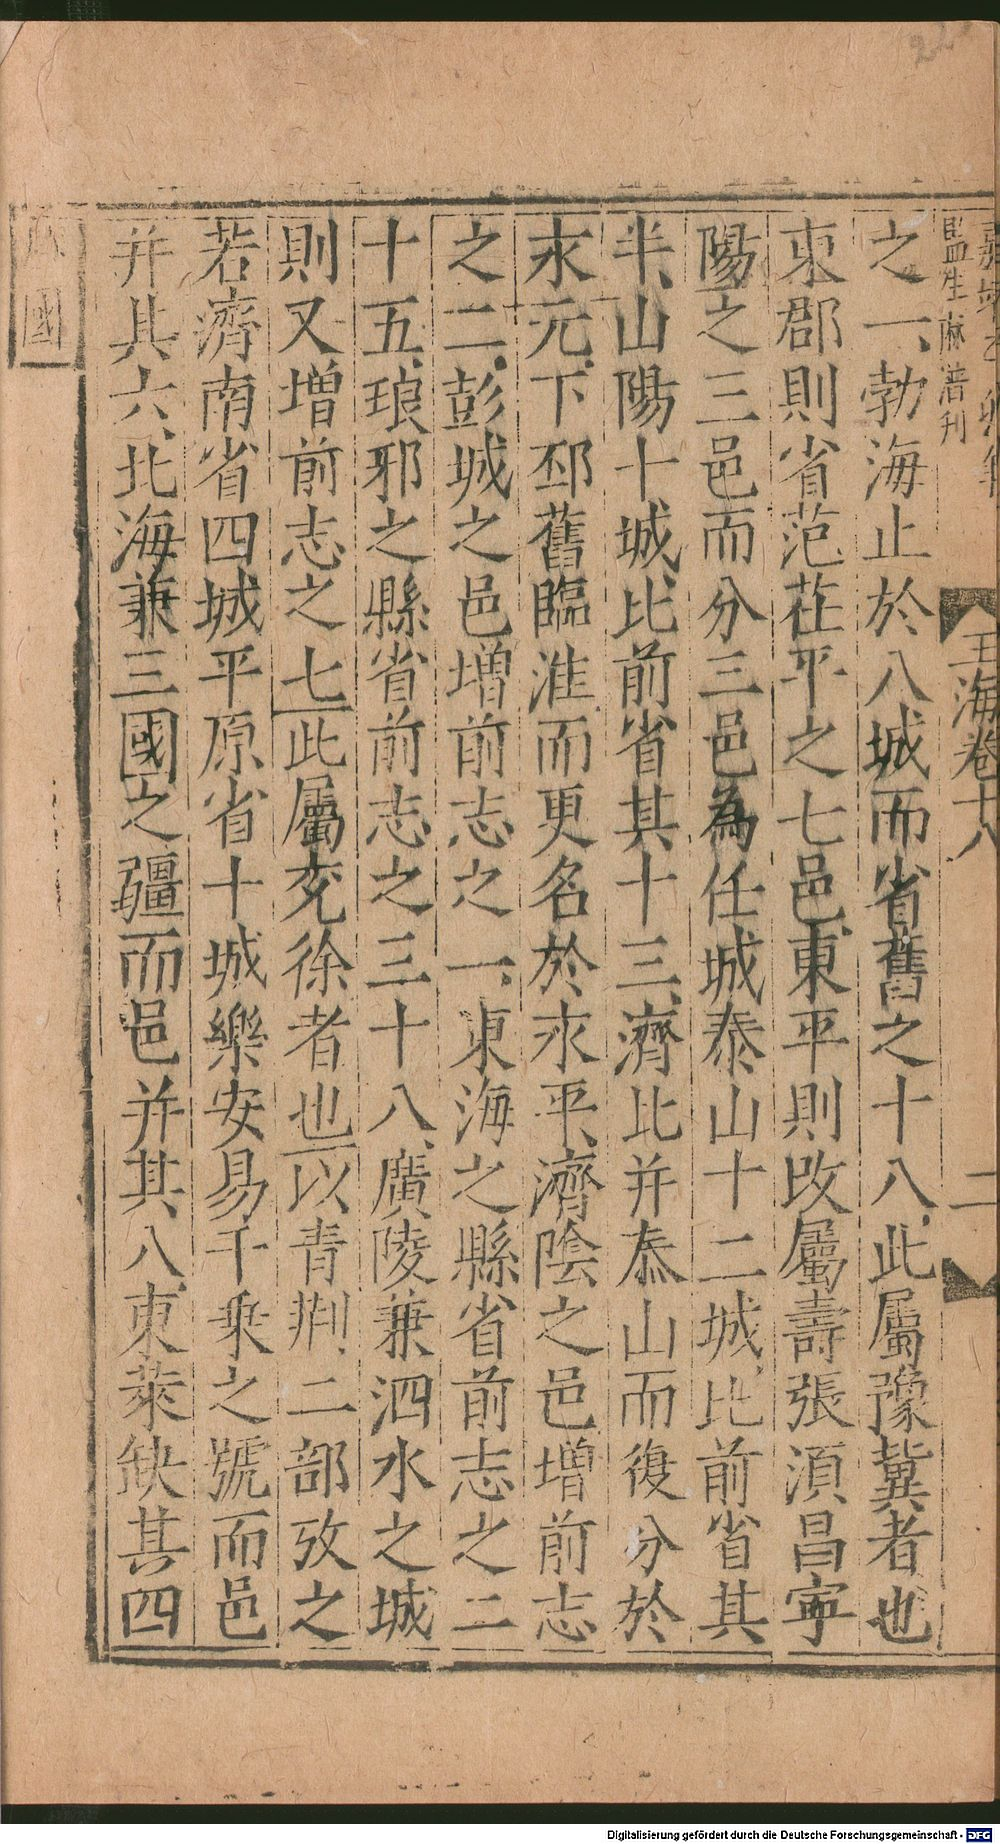 監生麻濬刊
玉海卷十八
二
之一、勃海止於八城而省舊之十八、此屬豫冀者也
東郡則省范茌平之七邑、東平則改屬壽張湏昌寧
陽之三邑而分三邑為任城泰山十二城、比前省其
半、山陽十城、比前省其十三、濟北并泰山而復分於
永元、下邳舊臨淮而更名於永平、濟陰之邑增前志
之二、彭城之邑增前志之一、東海之縣省前志之二
十五、琅邪之縣省前志之三十八、廣陵兼泗水之城
則又增前志之七此屬兖徐者也以青荆二部攷之
若濟南省四城平原省十城樂安易千乗之號而邑
并其六、北海兼三國之疆而邑并其八、東萊缺其四
國
Digitalisierung gefördert durch die Deutsche Forschungsgemeinschaft - DFG